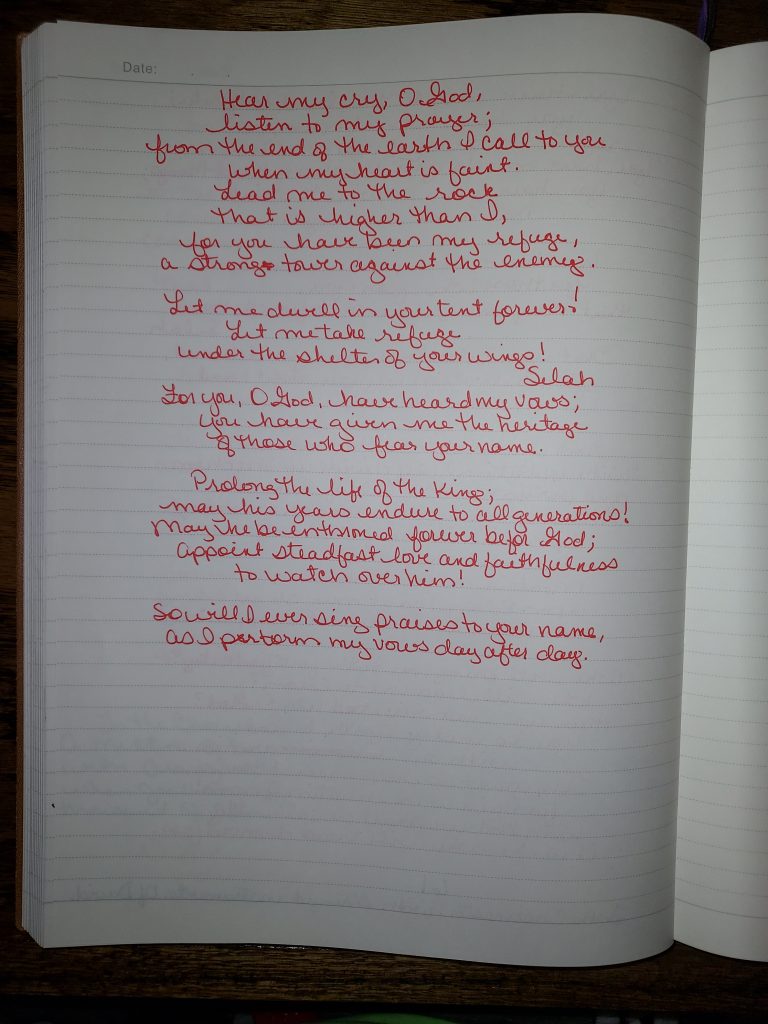 Date:
Hear my cry, O God,
listen to my prayer;
from the end of the earth I call to you
when my heart is faint.
Lead me to the rock
that is higher than I,
for you have been my refuge,
a strong tower against the enemy.
Let me dwell in your tent forever!
Let me take refuge
under the shelter of your wings!
Selah
For you, O God, have heard my vows;
you have given me the heritage
of those who fear your name.
Prolong the life of the King;
may his years endure to all generations!
May he be enthroned forever befor God;
appoint steadfast love and faithfulness
to watch over him!
So will I ever sing praises to your name,
as I perform my vows day after day.